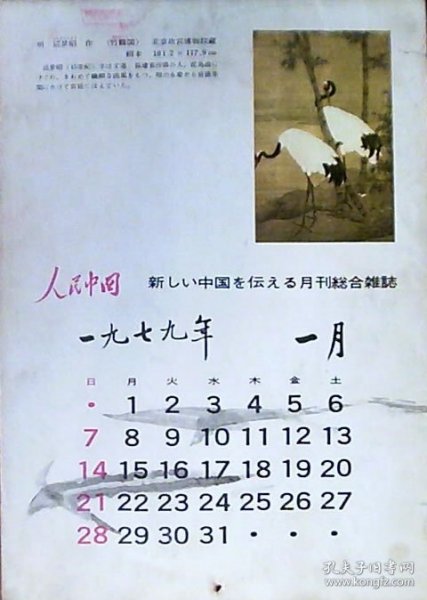 明 辺景昭 作 〈竹鶴図〉 北京故宮博物院蔵
絹本 181.2×117.9cm
人民中国
新しい中国を伝える月刊総合雑誌
一九七九年 一月
日 月 火 水 木 金 土
• 1 2 3 4 5 6
7 8 9 10 11 12 13
14 15 16 17 18 19 20
21 22 23 24 25 26 27
28 29 30 31 • • •
孔夫子旧书网
www.kongfz.com